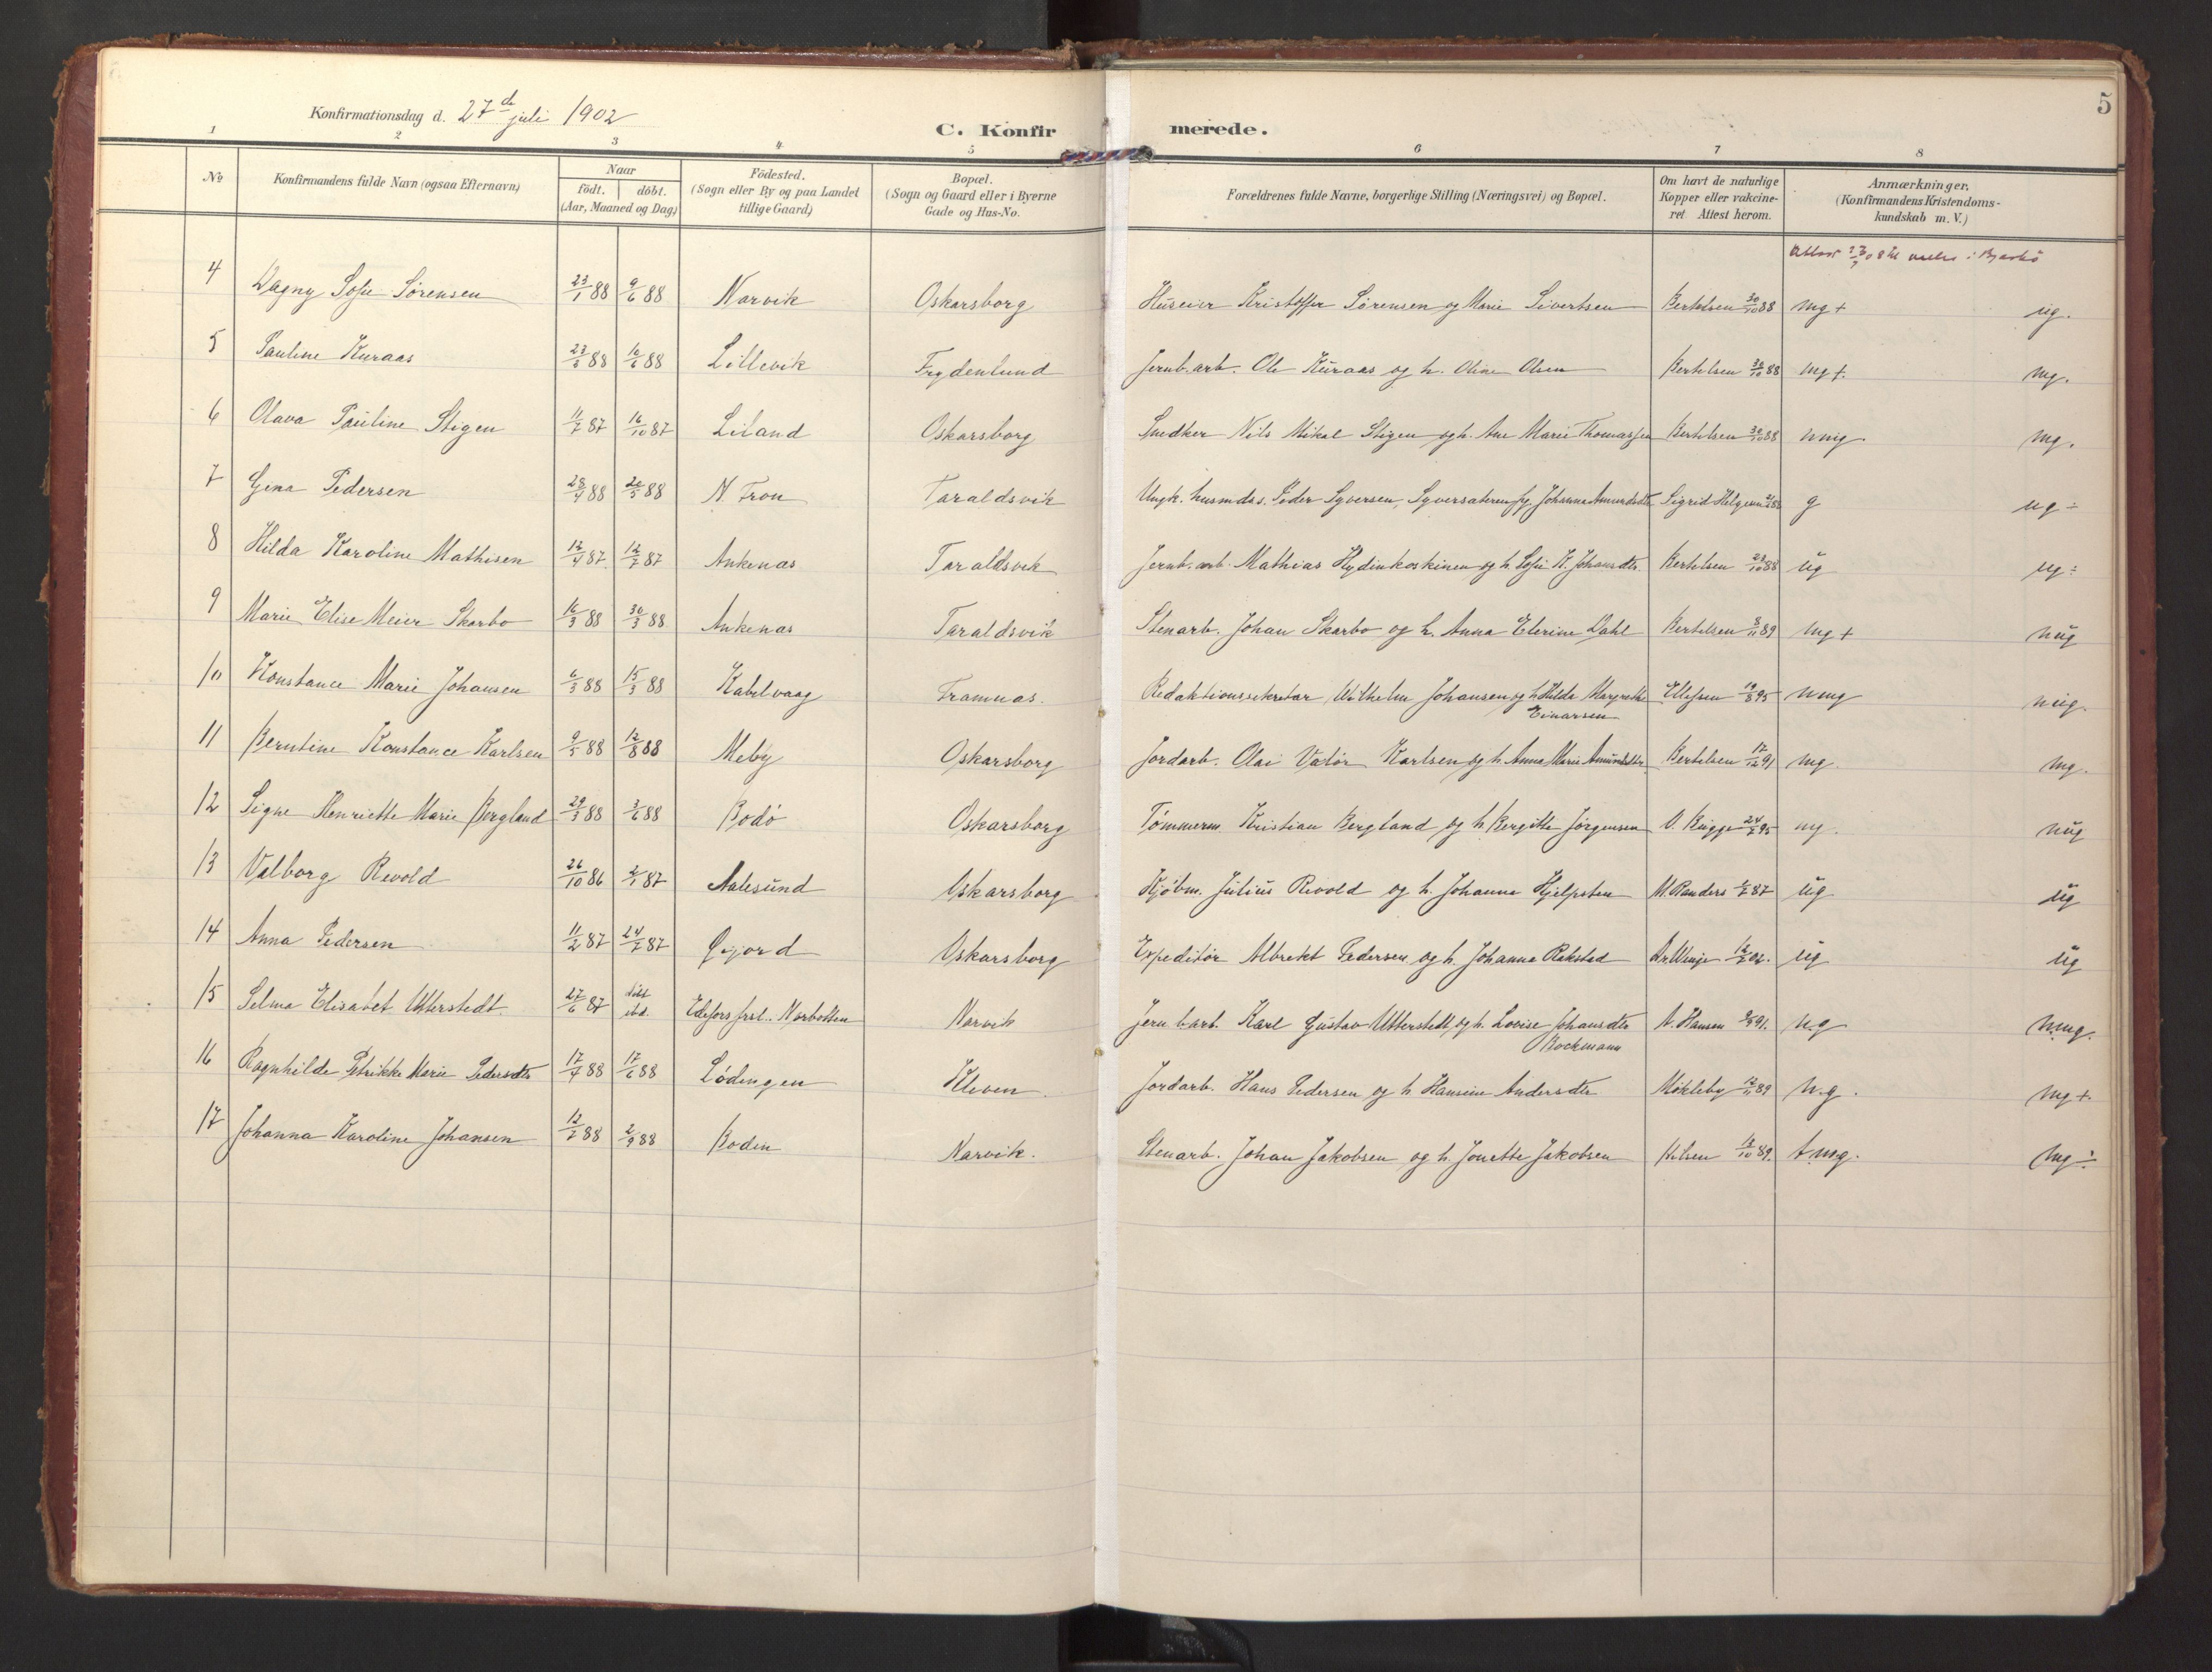 5
Konfirmationsdag d. 27de juli 1902
C. Konfirmerede.
1 2 3 4 5 6 7 8
No
Konfirmandens fulde Navn (ogsaa Efternavn)
Naar
födt. döbt.
(Aar, Maaned og Dag)
Födested.
(Sogn eller By og paa Landet
tillige Gaard)
Bopæl.
(Sogn og Gaard eller i Byerne
Gade og Hus-No.
Forældrenes fulde Navne, borgerlige Stilling (Næringsvei) og Bopæl.
Om havt de naturlige
Kopper eller vakcine-
ret Attest herom.
Anmærkninger.
(Konfirmandens Kristendoms-
kundskab m. V.)
4 Dagny Sofie Sörensen 23/1 88 9/6 88 Narvik Oskarsborg Huseier Kristoffer Sörensen og Marie Sivertsen Bertelsen 30/10 88 mg+ ug.
5 Pauline Kuraas 88 16/6 88 Lillevik Frydenlund Jernb.arb. Ole Kuraas og h. Oline Olsen Bertelsen 30/10 88 mg+. mg.
6 Olava Pauline Stigen 11/7 87 16/10 87 Liland Oskarsborg Snedker Nils Mikal Stigen og h. Ane Marie Thomassen Bertelsen 30/10 88 mg.
7 Gina Pedersen 28/4 88 20/5 88 N. Fron Taraldsvik Ungk. husmds. Peder Syversen, Johanna Amundsdtr Sigrid g ug÷
8 Hilda Karoline Mathisen 12/4 87. 12/7 87 Ankenæs Taraldsvik Jernb. arb. Mathias Hydenkoskinen og h. Sofie K. Johansdtr. Bertelsen 23/10 88 ug ug÷
9 Marie Elise Meier Skarbo 16/3 88 30/3 88 Ankenæs Taraldsvik Stenarb. Johan Skarbo og h. Anna Elerine Dahl Bertelsen 8/11 89 mg+ mug
10 Konstance Marie Johansen 6/3 88 15/3 88 Kabelvaag Framnæs. Redaktionssekretær Wilhelm Johansen og h. Hilda Margrethe
Einarsen Ellefsen 19/8 95 mug.
11 Berntine Konstance Karlsen 9/5 88 12/8 88 Meby Oskarsborg Jordarb. Olai Valör Karlsen og h. Anna Marie Amundsdtr. Bertelsen 17/12 91 mg. mg.
12 Signe Henriette Marie Bergland 29/3 88 3/6 88 Bodö Oskarsborg Tömmerm. Kristian Bergland og h. Bergitte Jörgensen O. Bugge 24/7 95 mug
13 Valborg Revold 26/10 86 2/1 87 Aalesund Oskarsborg Kjöbm. Julius Revold og h. Johanne Hjelpsten M. Randers 87 ug ug
14 Anna Pedersen 11/2 87 24/7 87 Oskarsborg Expeditör Albrekt Pedersen og h. Johanna Rekstad Dr. Winge 02. ug ug
15 Selma Elisabet Utterstedt 27/6 87 döbt
ibd. Edefors Norbotten Narvik Jernb.arb. Karl Gustav Utterstedt og h. Lovise Johansdtr
Bockmann Hansen 91. ng
16 Ragnhilde Petrikke Marie Pedersdtr 17/4 88 17/6 88 Lödingen Kleven. Jordarb. Hans Pedersen og h. Hansine Andersdtr Mökleby 12/11 89 N.g. mg+.
17 Johanna Karoline Johansen 12/7 88 2/9 88 Bodin Narvik. Stenarb. Johan Jakobsen og h. Jonette Jakobsen Nilsen 12/10 89. mg÷